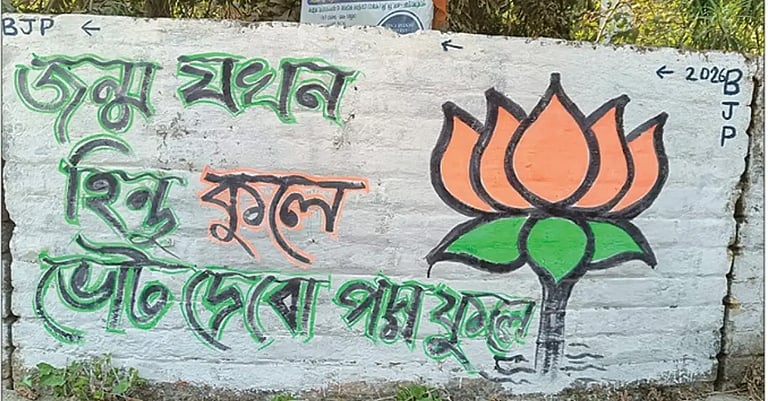 BJP ←
←
← 2026 BJP
জন্ম যখন
হিন্দু কুলে
ভোট দেবো পদ্ম ফুলে